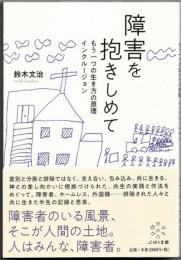 障害を
抱きしめて
もう一つの生き方の原理
インクルージョン
鈴木文治
差別と分断と排除ではなく、支え合い、包み込み、共に生きる。
神との差し向かいに根拠づけられた、共生の実践と作法を
めぐって。障害者、ホームレス、外国籍……排除された人々と
共に生きた半生の記録と思索。
障害者のいる風景、
そこが人間の土地。
人はみんな、障害者。
ぷねうま舎